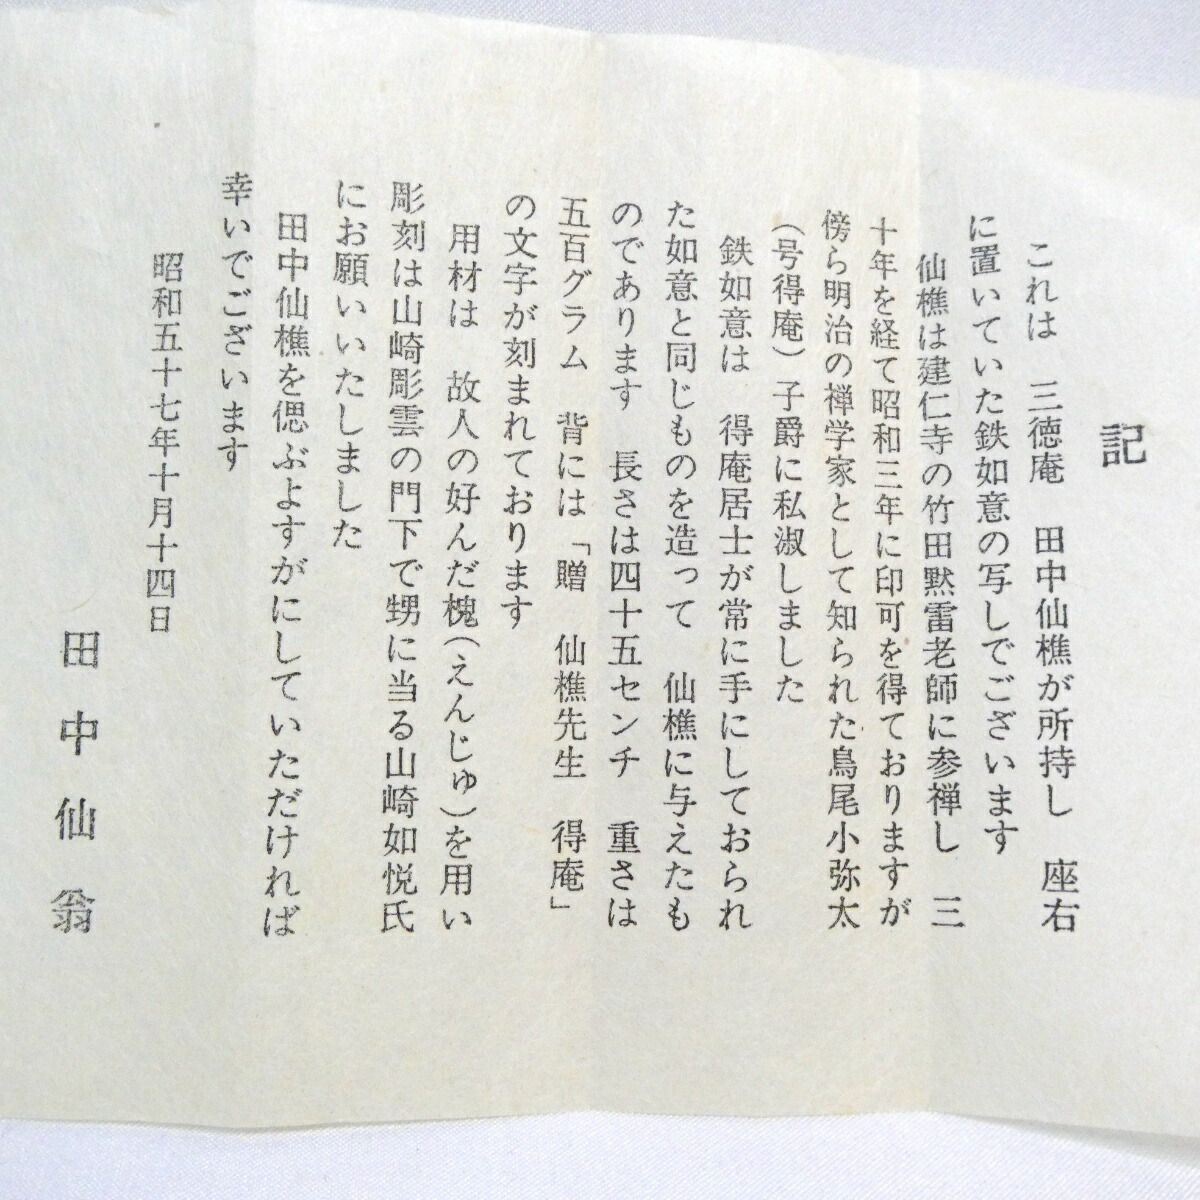 記
これは　三徳庵　田中仙樵が所持し　座右
に置いていた鉄如意の写しでございます
仙樵は建仁寺の竹田黙雷老師に参禅し　三
十年を経て昭和三年に印可を得ておりますが
傍ら明治の禅学家として知られた鳥尾小弥太
（号得庵）子爵に私淑しました
鉄如意は　得庵居士が常に手にしておられ
た如意と同じものを造って　仙樵に与えたも
のであります　長さは四十五センチ　重さは
五百グラム　背には「贈　仙樵先生　得庵」
の文字が刻まれております
用材は　故人の好んだ槐（えんじゅ）を用い
彫刻は山崎彫雲の門下で甥に当る山崎如悦氏
にお願いいたしました
田中仙樵を偲ぶよすがにしていただければ
幸いでございます
昭和五十七年十月十四日
田中仙翁